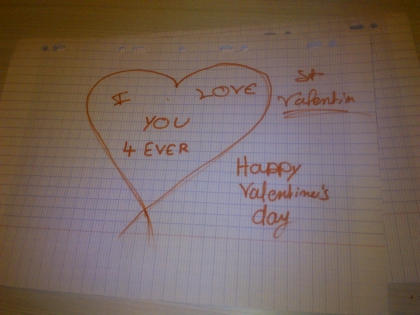 I LOVE
YOU
4 EVER
St
Valentin
Happy
Valentine's
day